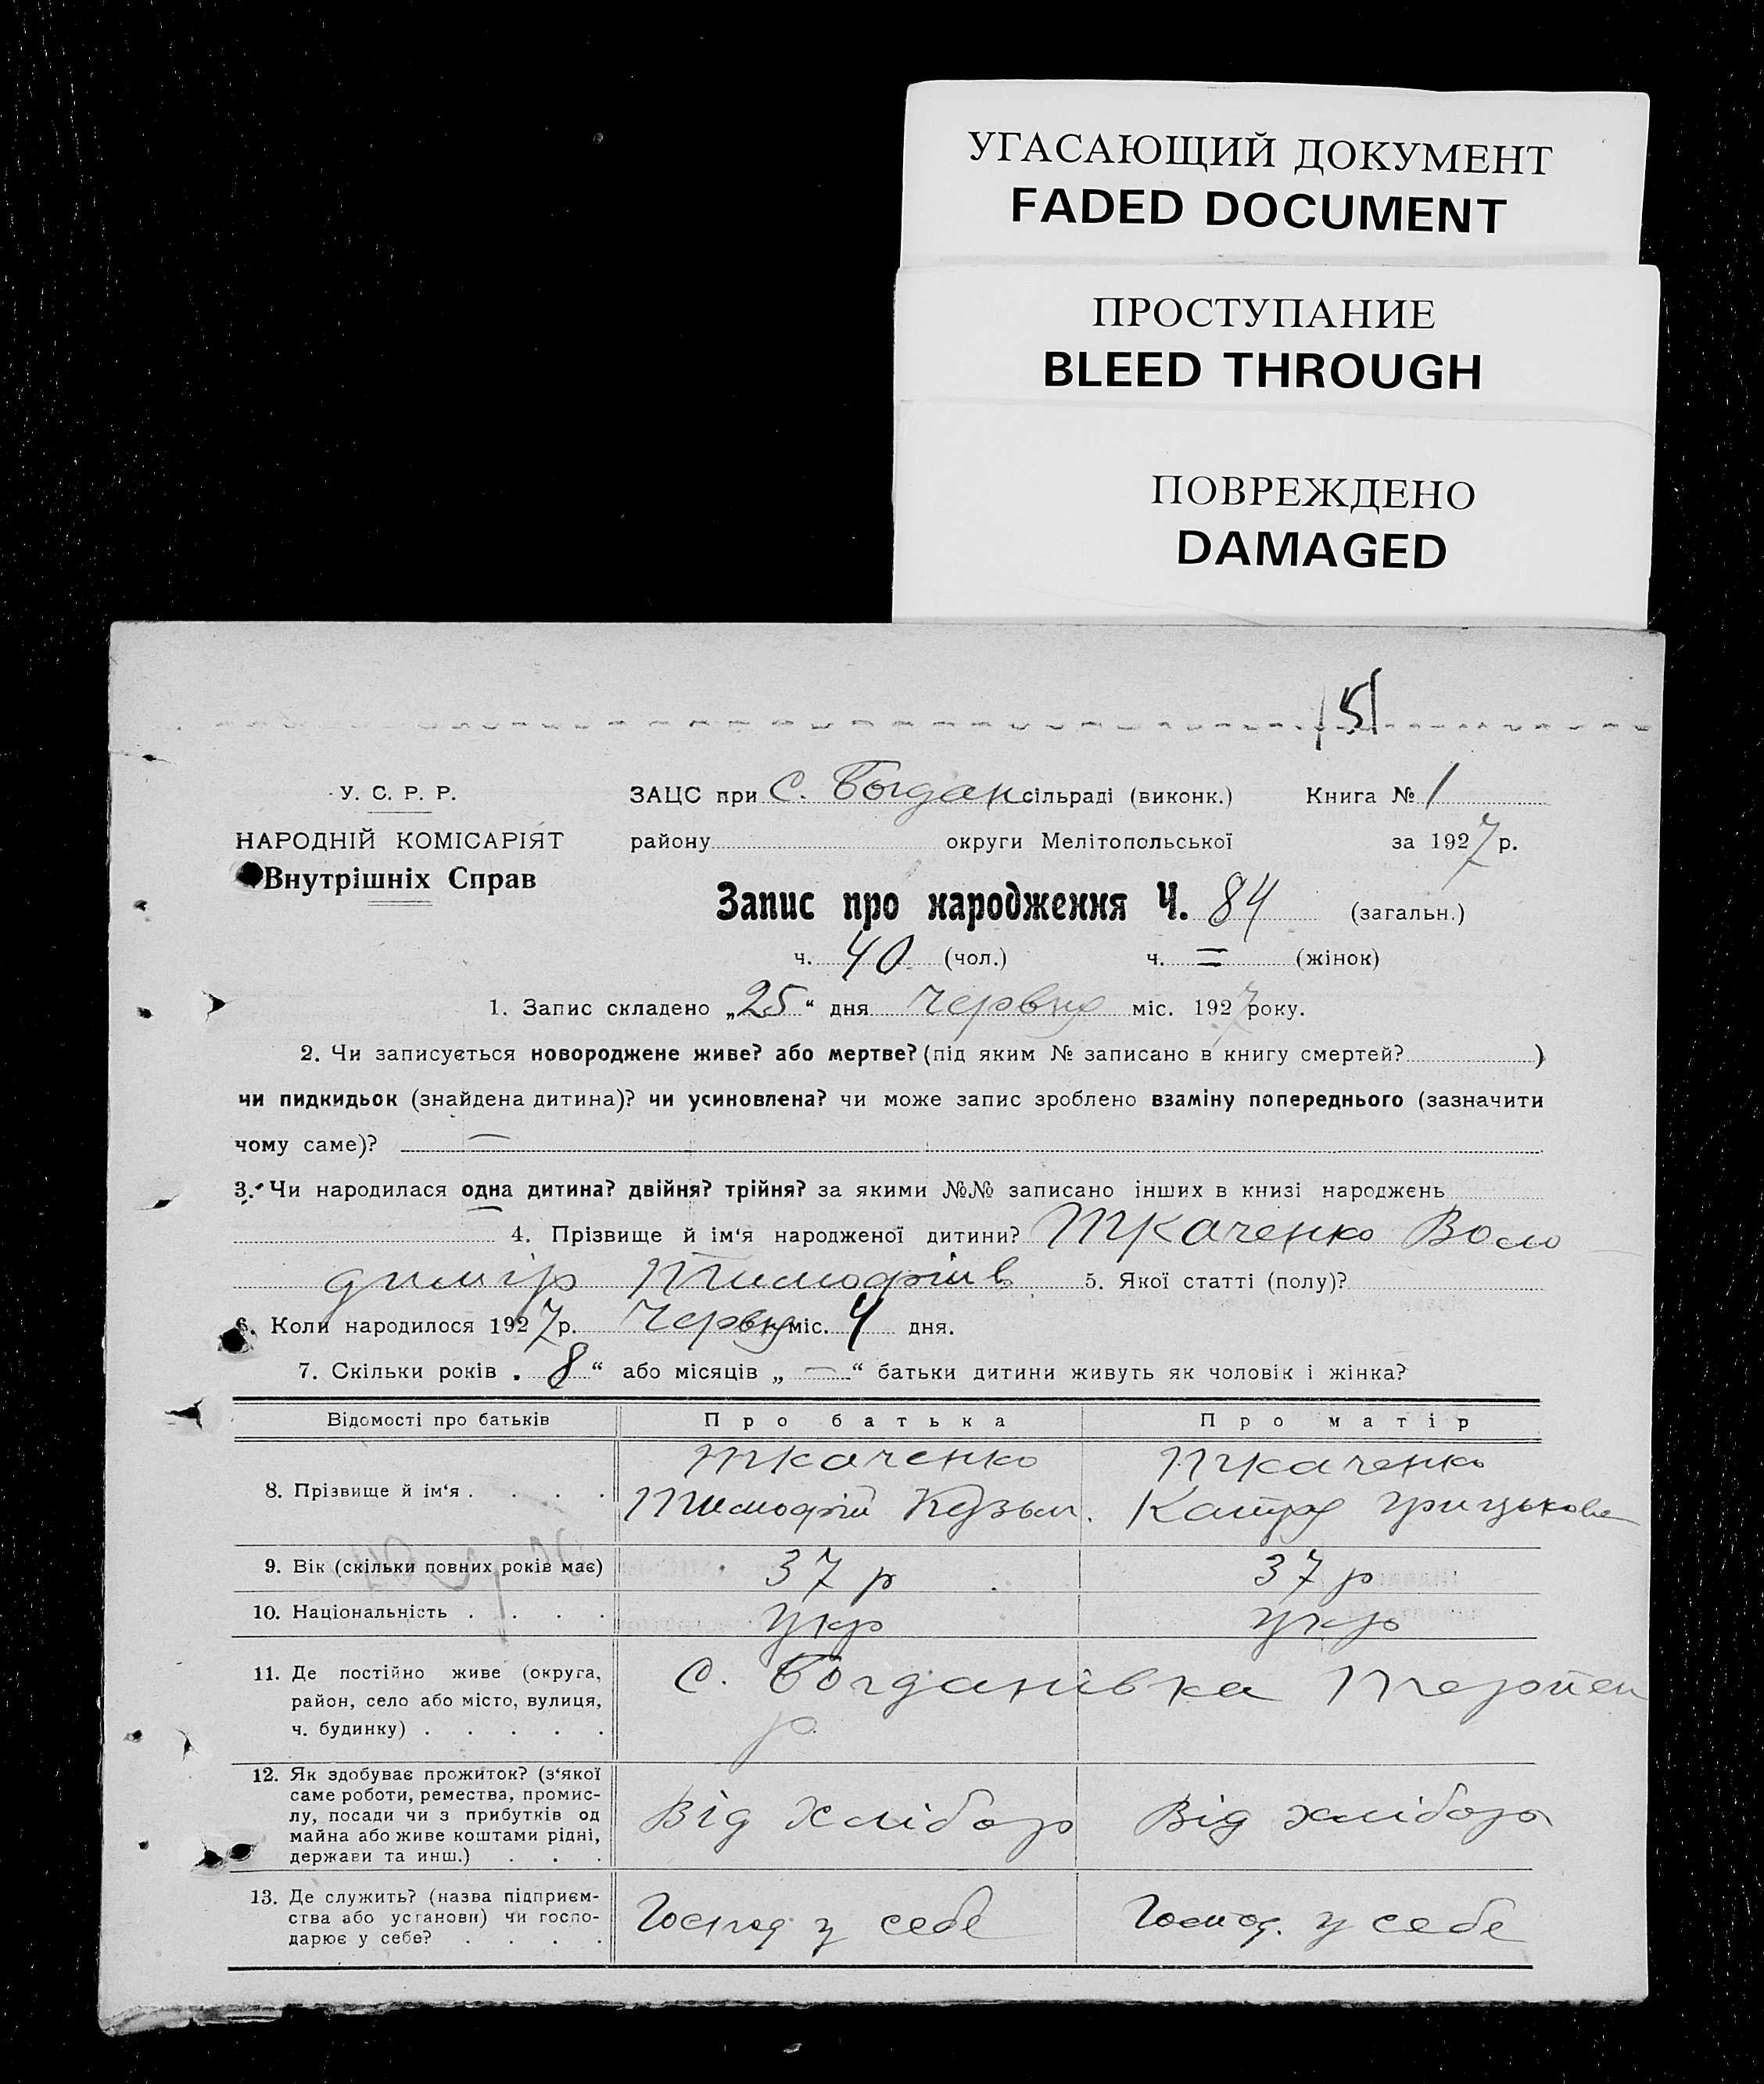 УГАСАЮЩИЙ ДОКУМЕНТ
FADED DOCUMENT
ПРОСТУПАНИЕ
BLEED THROUGH
ПОВРЕЖДЕНО
DAMAGED
У. С. Р. Р.
НАРОДНІЙ КОМІСАРІЯТ
Внутрішніх Справ
ЗАЦС при С. Богдан сільраді (виконк.) Книга № 1
району округи Мелітопольської за 1927 р.
Запис про народження Ч. 84 (загальн.)
ч. 40 (чол.) ч. = (жінок)
1. Запис складено „25“ дня Червня міс. 1927 року.
2. Чи записується новороджене живе? або мертве? (під яким № записано в книгу смертей? )
чи пидкидьок (знайдена дитина)? чи усиновлена? чи може запис зроблено взаміну попереднього (зазначити
чому саме)? —
3. Чи народилася одна дитина? двійня? трійня? за якими №№ записано інших в книзі народжень
4. Прізвище й ім‘я народженої дитини? Ткаченко Воло
димір Тимофіів 5. Якої статті (полу)?
6. Коли народилося 1927 р. Червня міс. 4 дня.
7. Скільки років „8“ або місяців „—“ батьки дитини живуть як чоловік і жінка?
Відомості про батьків Про батька Про матір
8. Прізвище й ім‘я . . . . Ткаченко Тимофій Кузьм. Ткаченко Катря Грицькова
9. Вік (скільки повних років має) 37 р 37 р
10. Національність . . . . укр укр
11. Де постійно живе (округа,
район, село або місто, вулиця,
ч. будинку) . . . . .
с. Богданівка Терпен
р.
12. Як здобуває прожиток? (з‘якої
саме роботи, ремества, промис-
лу, посади чи з прибутків од
майна або живе коштами рідні,
держави та инш.) . . .
Від хлібор Від хлібор
13. Де служить? (назва підприєм-
ства або установи) чи госпо-
дарює у себе? . . . .
Господ у себе Господ. у себе